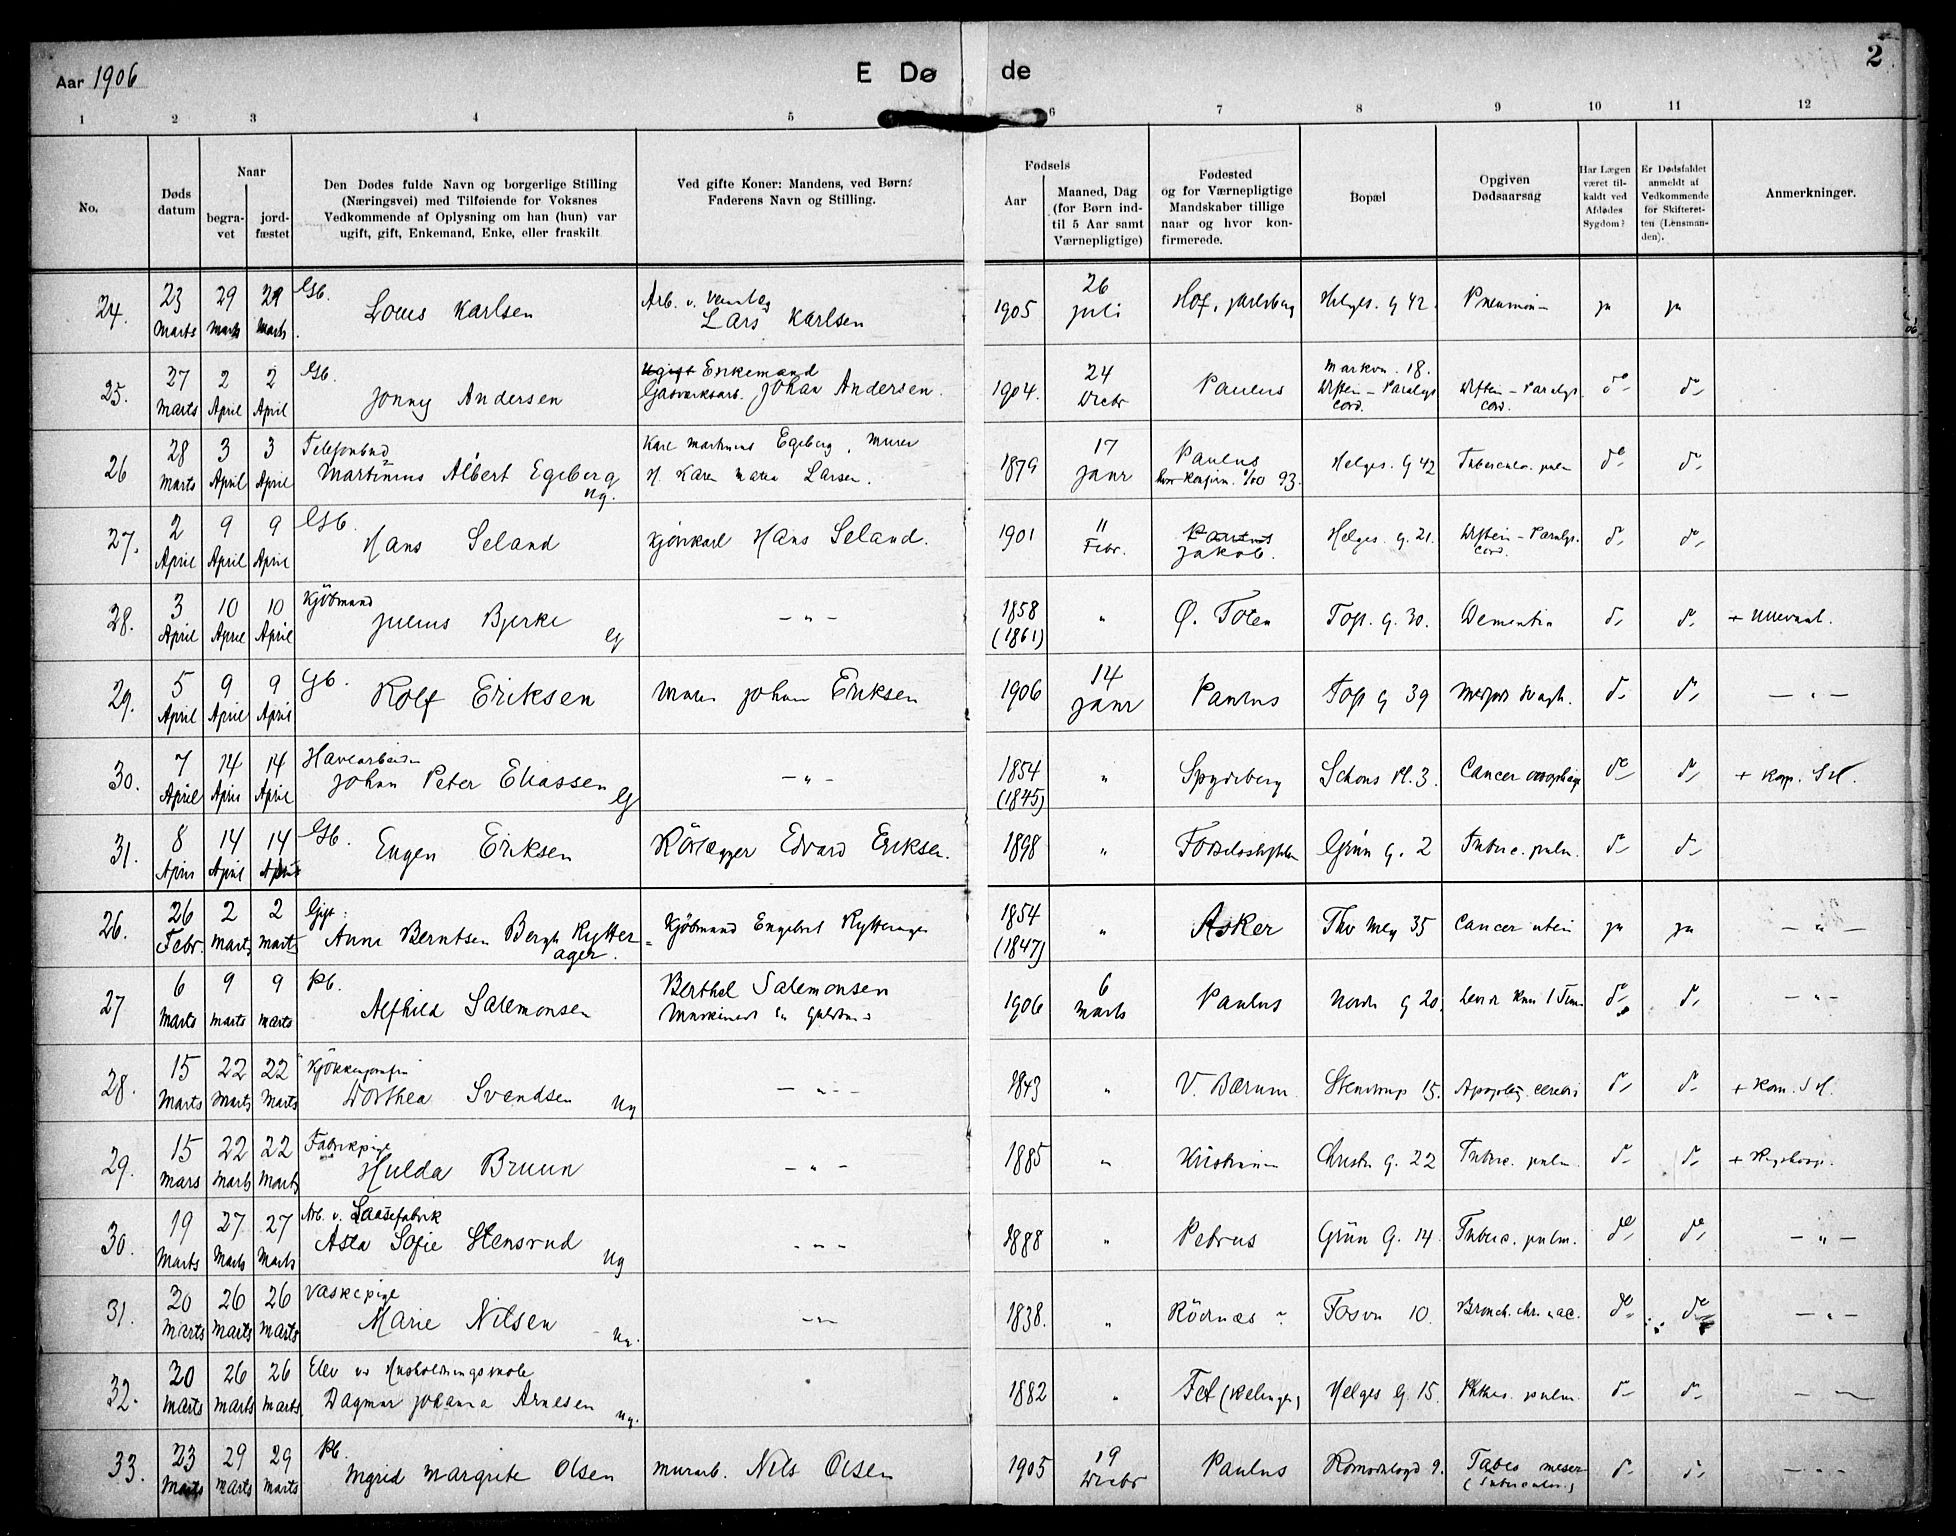 Aar 1906
E Dø de
2
1 2 3 4 5 6 7 8 9 10 11 12
No.
Døds datum
Naar
begravet
jordfæstet
Den Dødes fulde Navn og borgerlige Stilling
(Næringsvei) med Tilføiende for Voksnes
Vedkommende af Oplysning om han (hun) var
ugift, gift, Enkemand, Enke, eller fraskilt
Ved gifte Koner: Mandens, ved Børn:
Faderens Navn og Stilling.
Fødsels
Aar
Maaned, Dag
(for Børn ind-
til 5 Aar samt
Værnepligtige)
Fødested
og for Værnepligtige
Mandskaber tillige
naar og hvor kon-
firmerede.
Bopæl
Opgiven
Dødsaarsag
Har Lægen
været til-
kaldt ved
Afdødes
Sygdom?
Er Dødsfaldet
anmeldt af
Vedkommende
for Skifteret-
ten (Lensman-
den).
Anmerkninger.
24. 23 Marts 29 Marts 29 Marts Gb. Louis Karlsen Arb. v. Lars Karlsen 1905 26 juli Hof, Jarlsberg Helges. G 42. Pneumoni ja ja
25. 27 Marts 2 April 2 April Gb. Jonny Andersen Ugift Enkemand Gasverksarb. Johan Andersen. 1904. 24 Decbr Paulus Markv. 18. do do
26 28 Marts 3 April 3 April Telefonbud Martinius Albert Egeberg ug. Karl Martinius Egeberg, Murer H. Karen Maria Larsen. 1879 17 Janr Paulus Konfirm. 93. Helges. G 42 Tuberculos. pulm do do
27. 2 April 9 April 9 April Gb. Hans Seland Hans Seland. 1901 11 Febr. Paulus Jakob. Helges. G. 21. do do
28. 3 April 10 April 10 April Kjöbmand Julius Bjerke G – „ – 1858 (1861) „ Ø. Toten Tofs. G. 30. Dementia do do + Ullevaal.
29. 5 April 9 April 9 April Gb. Rolf Eriksen Murer Johan Eriksen 1906 14 Janr Paulus Tofs G 39 Medfödt Svagh. do do – „ –
30. 7 April 14 April 14 April Havearbeider Johan Peter Eliassen G – „ – 1854 (1845) „ Spydeberg Schous Pl. 3. Cancer do do + Kom. S H.
31. 8 April 14 April 14 April Gb. Eugen Eriksen Rörlægger Edvard Eriksen. 1898 „ Födselsstiftelsen Grün G. 2 Tuberc. pulm. do do
26. 26 Febr. 2 Marts 2 Marts Gift: Anne Berntsen Bergh Rytterager. Kjöbmand Engebret Rytterager 1854 (1847) „ Asker Thv Mey 35 Cancer uteri ja ja – „ –
27 6 Marts 9 Marts 9 Marts Pb. Alfhild Salemonsen Berthel Salemonsen 1906 6 Marts Paulus Nordre G 20. Levede kun 1 Time do do – „ –
28. 15 Marts 22 Marts 22 Marts Kjökkenjomfru Dorthea Svendsen Ug – „ – 1843 „ V. Bærum Stenstrup 15. Apoplexi cerebri do do + Kom. S H.
29. 15 Mars 22 Marts 22 Marts Fabrikpige Hulda Bruun – „ – 1885 „ Kristiania Christies G. 22 Tuberc. pulm. do do + Rigshosp.
30. 19 Marts 27 Marts 27 Marts Arb. v. Laasefabrik Asta Sofie Stensrud Ug – „ – 1888 „ Petrus Grün G. 14. Tuberc. pulm. do do – „ –
31. 20 Marts 26 Marts 26 Marts Vaskepige Marie Nilsen Ug. – „ – 1838. „ Rödnæs Fossv 10. Bronch. chr. ac. do do – „ –
32. 20 Marts 26 Marts 26 Marts Elev ved Husholdningsskole Dagmar Johanna Arnesen ug. „ 1882 „ Fet (Rælingen) Helges G. 15. Phthis. pulm. do do – „ –
33. 23 Marts 29 Marts 29 Marts Pb. Ingrid Margrete Olsen Murarb. Nils Olsen 1905 19 Decbr Paulus Romsdalsgd 9. Tabes meser (Tuberculos.) do do – „ –